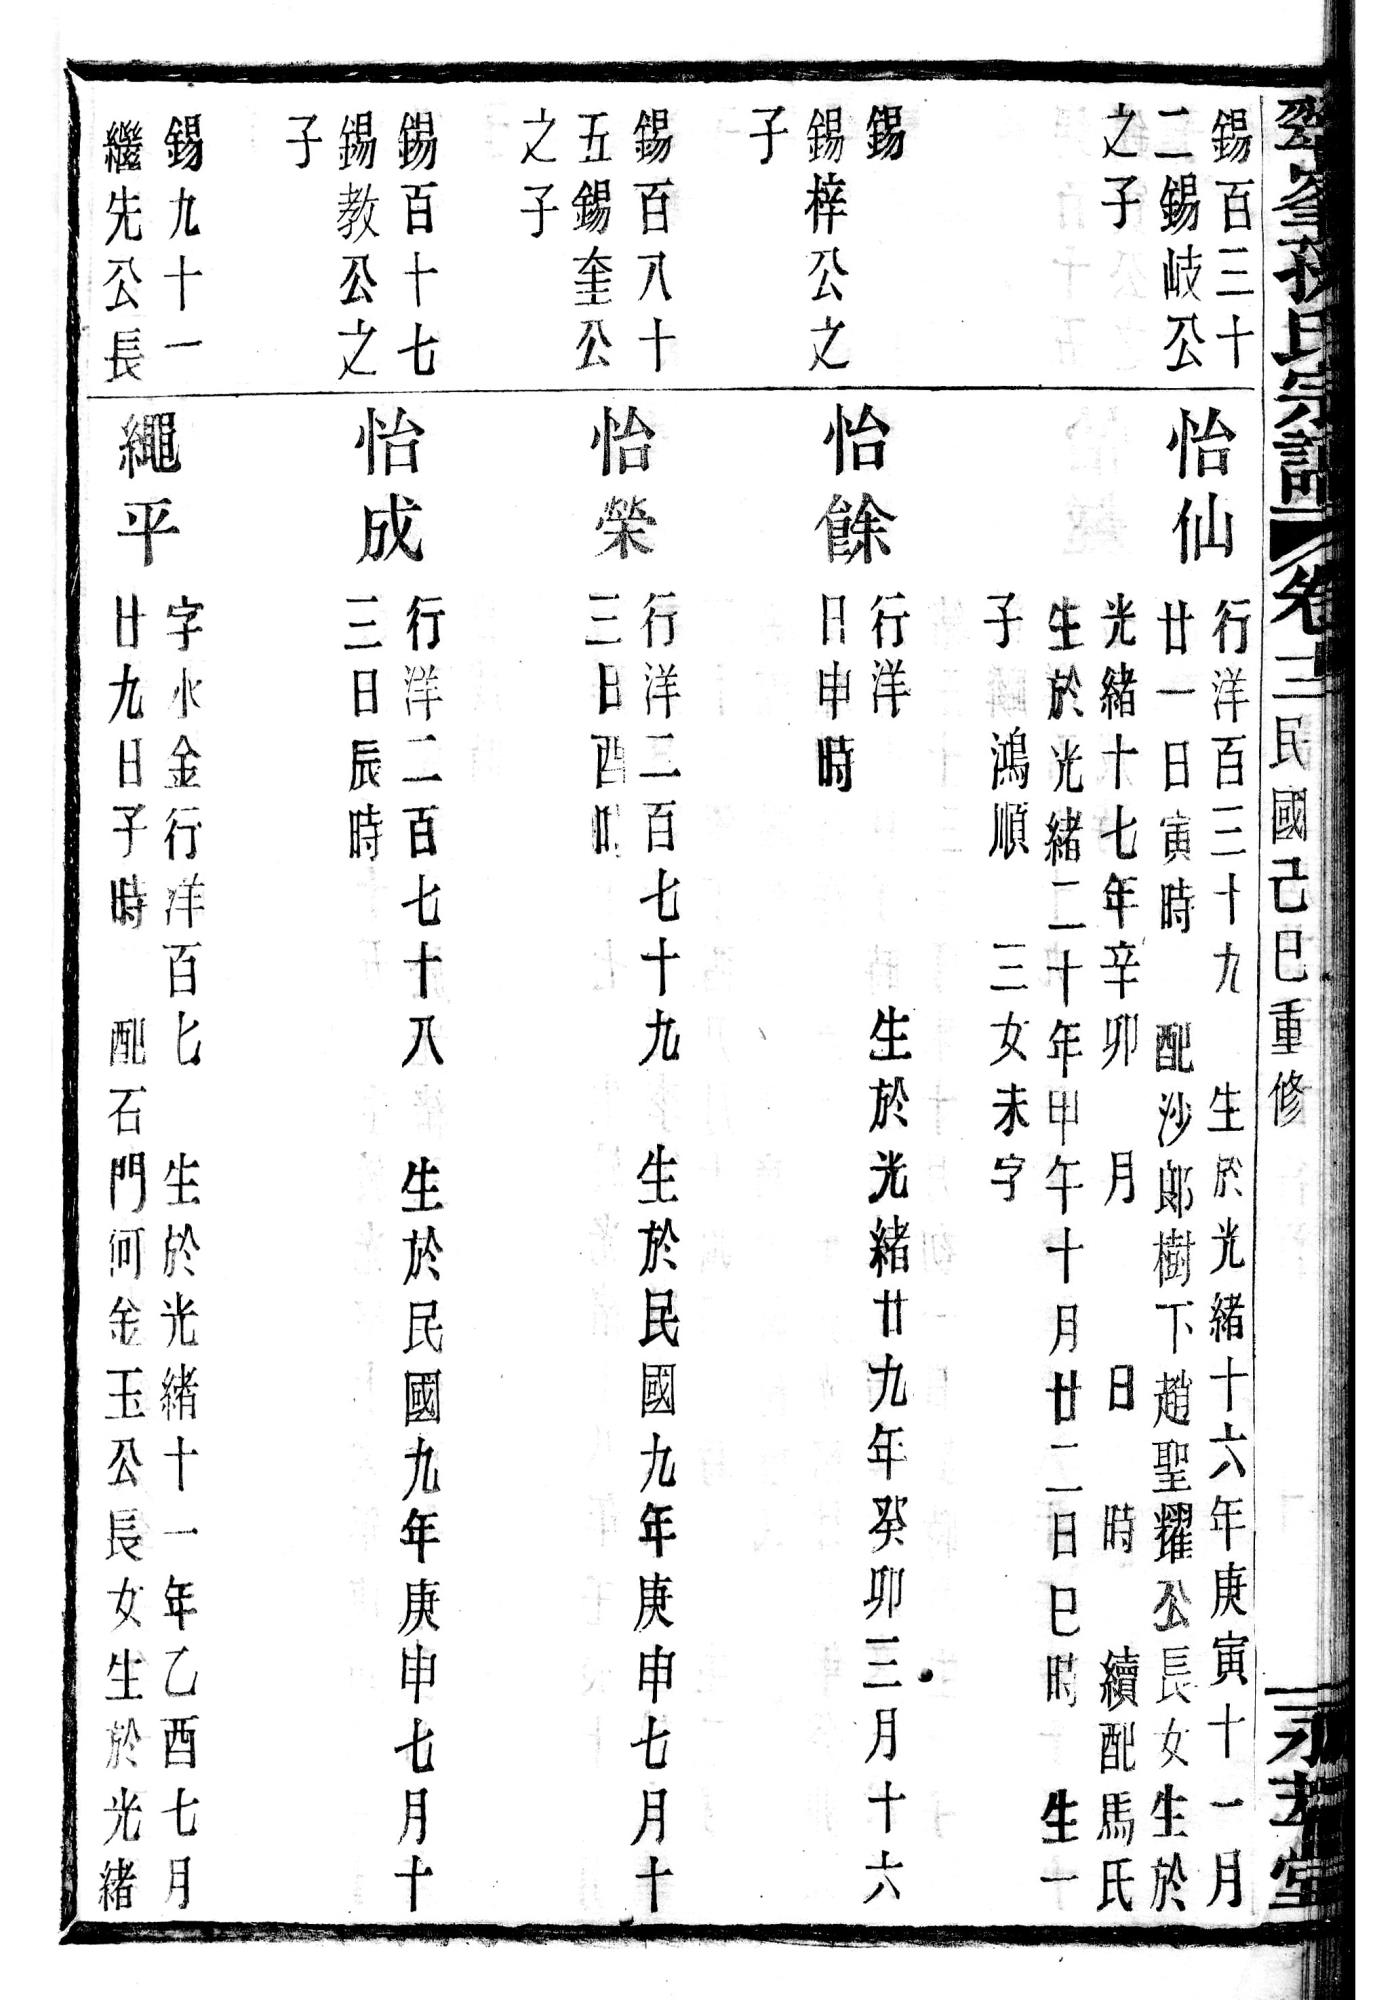 氏宗譜 卷三 民國己巳重修 堂
錫百三十
二錫岐公
之子
怡仙
行洋百三十九 生於光緒十六年庚寅十一月
廿一日寅時 配沙郎樹下趙聖耀公長女生於
光緒十七年辛卯 月 日 時 續配馬氏
生於光緒二十年甲午十月廿二日巳時 生一
子 鴻順 三女未字
錫
錫梓公之
子
怡餘
行洋 生於光緒廿九年癸卯三月十六
日申時
錫百八十
五錫奎公
之子
怡榮
行洋二百七十九 生於民國九年庚申七月十
三日酉時
錫百十七
錫教公之
子
怡成
行洋二百七十八 生於民國九年庚申七月十
三日辰時
錫九十一
繼先公長
繩平
字水金行洋百七 生於光緒十一年乙酉七月
廿九日子時 配石門何金玉公長女生於光緒